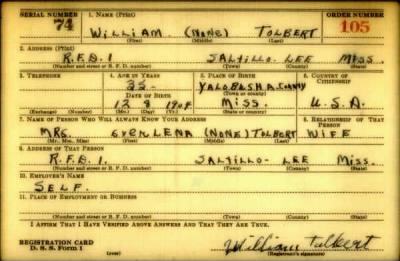 SERIAL NUMBER 1. NAME (Print) ORDER NUMBER
74 WILLIAM (NONE) TOLBERT 105
(First) (Middle) (Last)
2. ADDRESS (Print)
R.F.D. 1 SALTILLO LEE MISS.
(Number and street or R. F. D. number) (Town) (County) (State)
3. TELEPHONE 4. AGE IN YEARS 5. PLACE OF BIRTH 6. COUNTRY OF CITIZENSHIP
YALOBUSHA COUNTY
DATE OF BIRTH (Town or county)
12 8 MISS. U.S.A.
(Exchange) (Number) (Mo.) (Day) (Yr.) (State or country)
7. NAME OF PERSON WHO WILL ALWAYS KNOW YOUR ADDRESS 8. RELATIONSHIP OF THAT PERSON
MRS. LENA (NONE) TOLBERT WIFE
(Mr., Mrs., Miss) (First) (Middle) (Last)
9. ADDRESS OF THAT PERSON
R.F.D. 1. SALTILLO LEE MISS.
(Number and street or R. F. D. number) (Town) (County) (State)
10. EMPLOYER'S NAME
SELF.
11. PLACE OF EMPLOYMENT OR BUSINESS
(Number and street or R. F. D. number) (Town) (County) (State)
I AFFIRM THAT I HAVE VERIFIED ABOVE ANSWERS AND THAT THEY ARE TRUE.
REGISTRATION CARD
D. S. S. Form 1 (over) William Tolbert
(Registrant's signature)